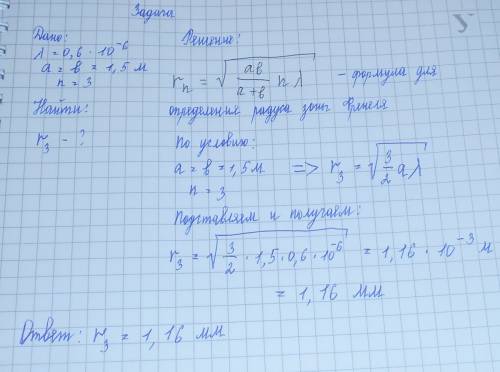 Задача
Дано:
λ = 0,6 · 10⁻⁶
a = b = 1,5 м
n = 3
Найти:
r₃ - ?
Решение:
rₙ = √(ab/(a+b) n λ) - формула для
определения радуса зоны Френеля
По условию:
a = b = 1,5 м => r₃ = √(3/2 a λ)
n = 3
Подставляем и получаем:
r₃ = √(3/2 · 1,5 · 0,6 · 10⁻⁶) = 1,16 · 10⁻³ м
= 1,16 мм
Ответ: r₃ = 1,16 мм